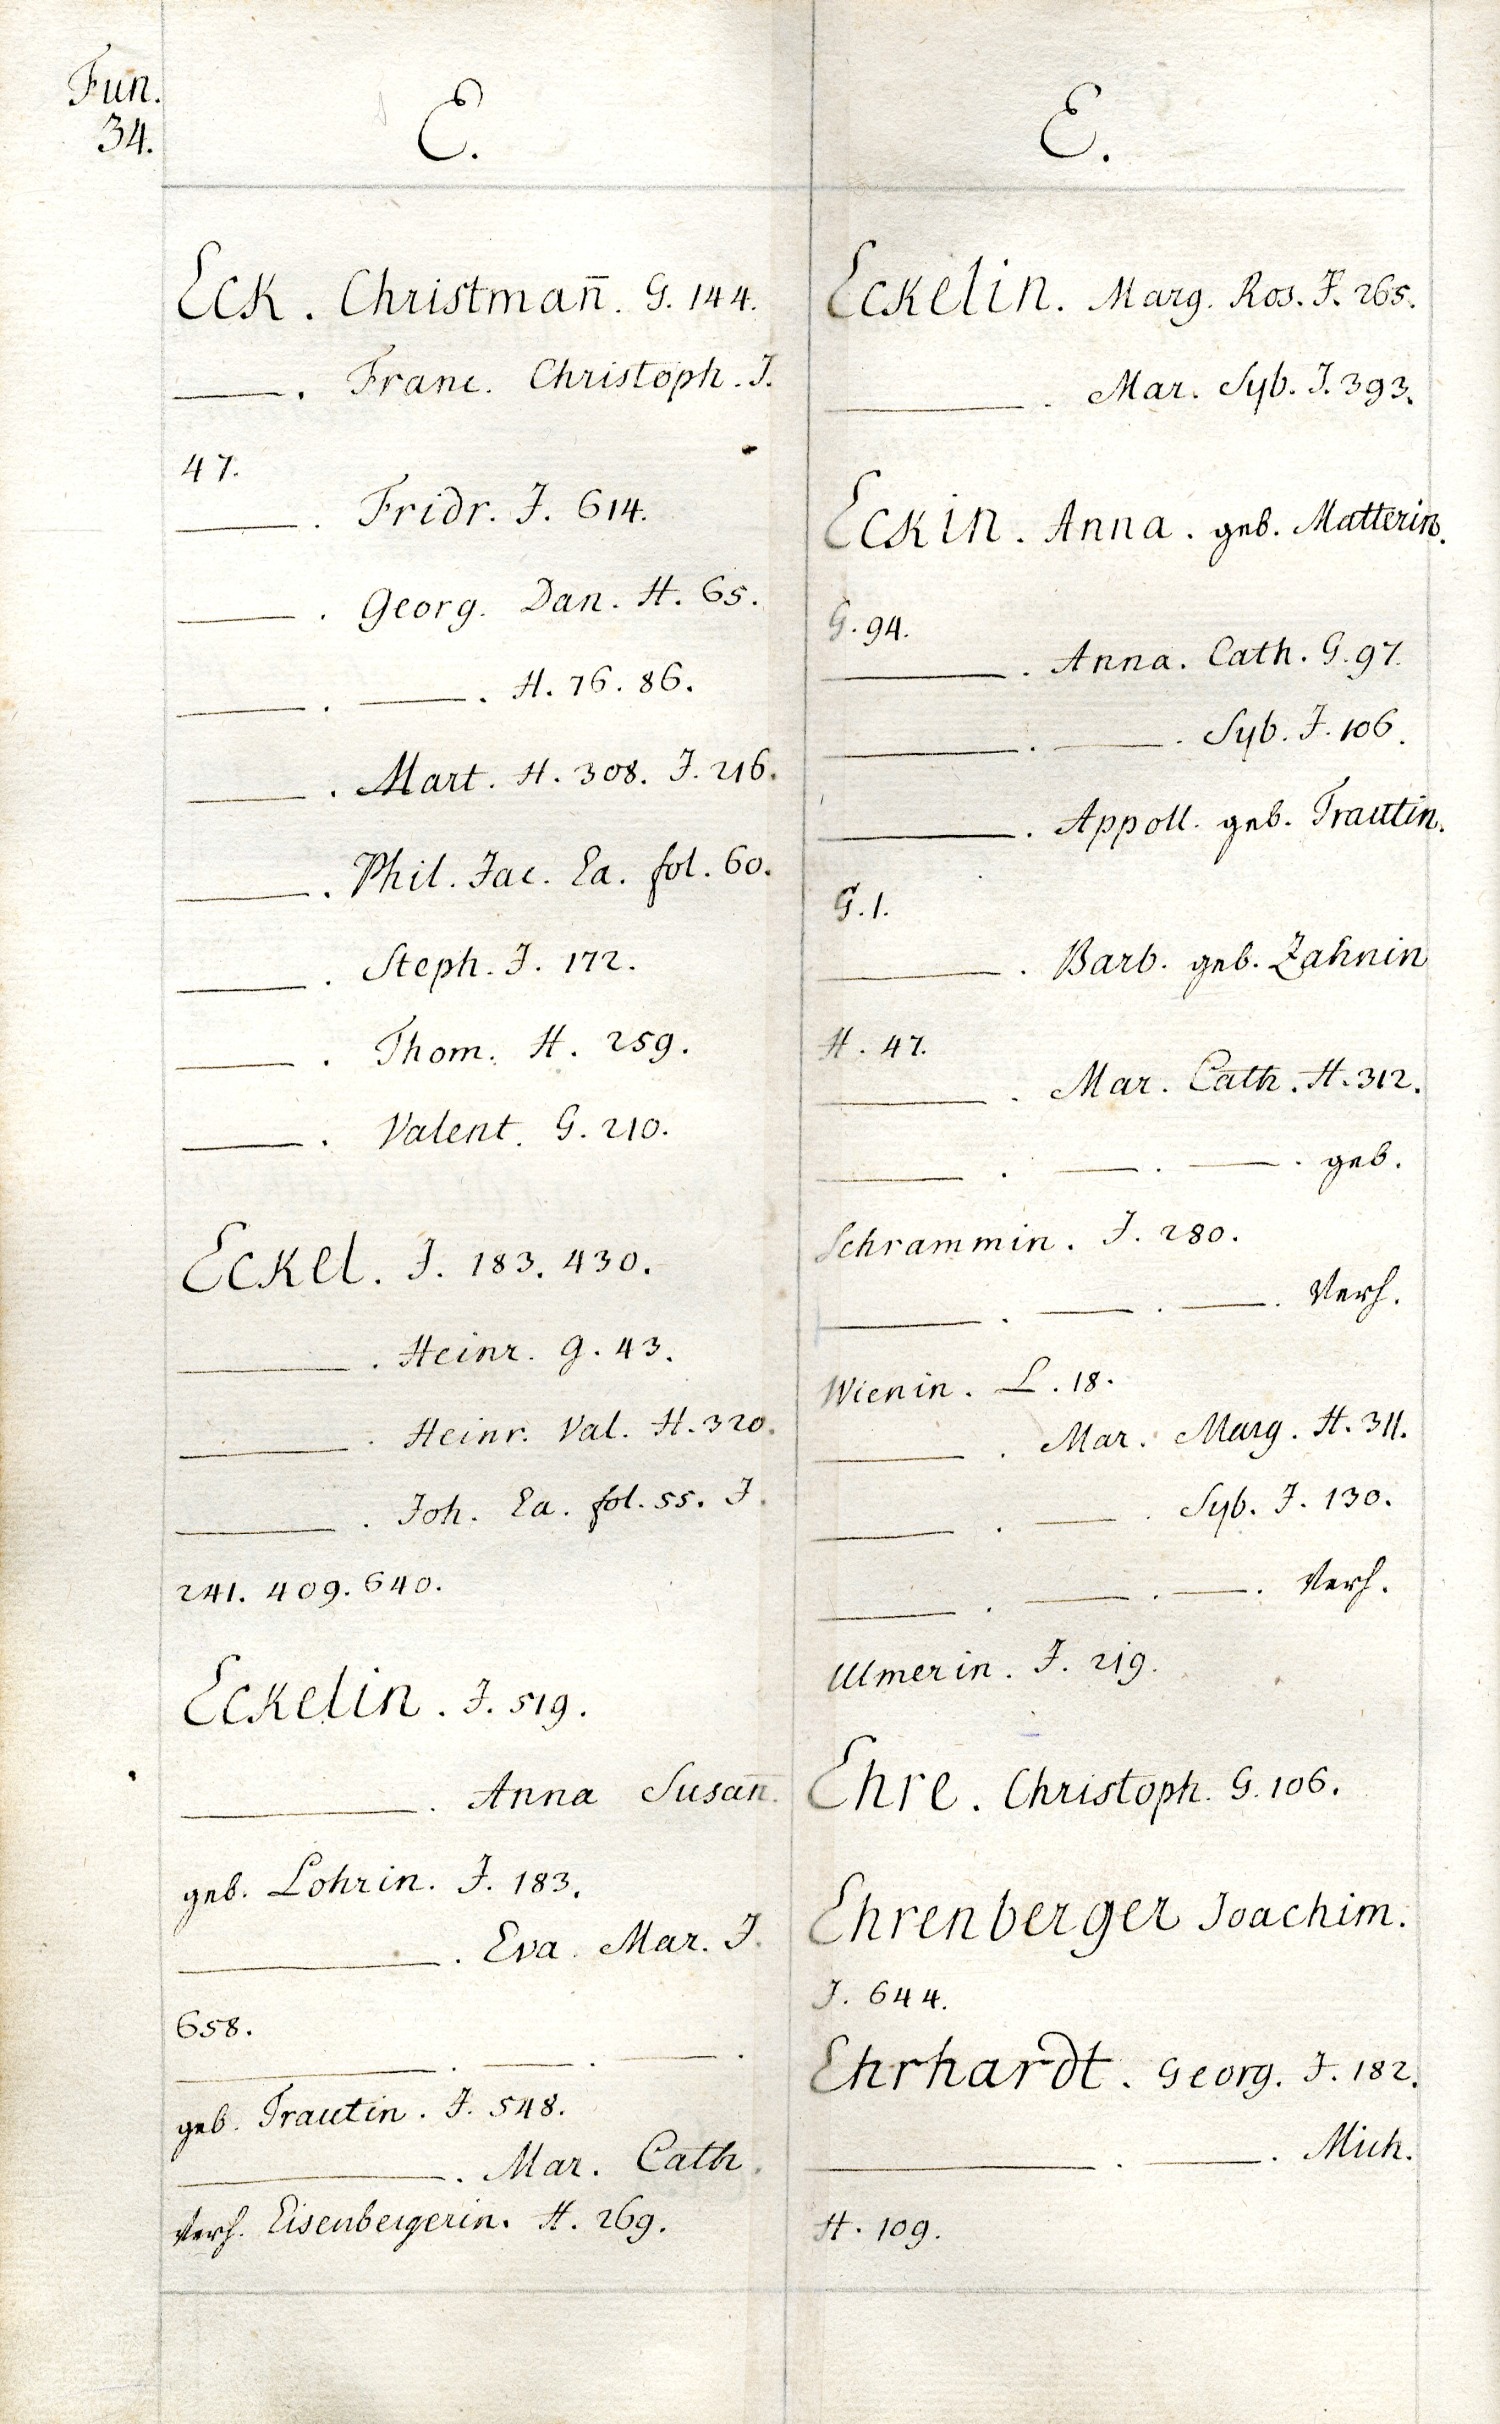 Fun.
34.
E.
Eck. Christman̄. G. 144.
—. Franc. Christoph. J.
47.
—. Fridr. J. 614.
—. Georg. Dan. H. 65.
—. —. H. 76. 86.
—. Mart. H. 308. J. 216.
—. Phil. Jac. Ea. fol. 60.
—. Steph. J. 172.
—. Thom. H. 259.
—. Valent. G. 210.
Eckel. J. 183. 430.
—. Heinr. G. 43.
—. Heinr. Val. H. 320.
—. Joh. Ea. fol. 55. J.
241. 409. 640.
Eckelin. J. 519.
—. Anna Susan̄.
geb. Lohrin. J. 183.
—. Eva. Mar. J.
658.
—. —. —.
geb. Trautin. J. 548.
—. Mar. Cath.
Verh. Eisenbergerin. H. 269.
E.
Eckelin. Marg. Ros. J. 265.
—. Mar. Syb. J. 393.
Eckin. Anna. geb. Matterin.
G. 94.
—. Anna. Cath. G. 97.
—. —. Syb. J. 106.
—. Appoll. geb. Trautin.
G. 1.
—. Barb. geb. Zahnin
H. 47.
—. Mar. Cath. H. 312.
—. —. —. geb.
Schrammin. J. 280.
—. —. —. Verh.
Wienin. L. 18.
—. Mar. Marg. H. 311.
—. —. Syb. J. 130.
—. —. —. Verh.
Ulmerin. J. 219.
Ehre. Christoph. G. 106.
Ehrenberger Joachim.
J. 644.
Ehrhardt. Georg. J. 182.
—. —. Mich.
H. 109.